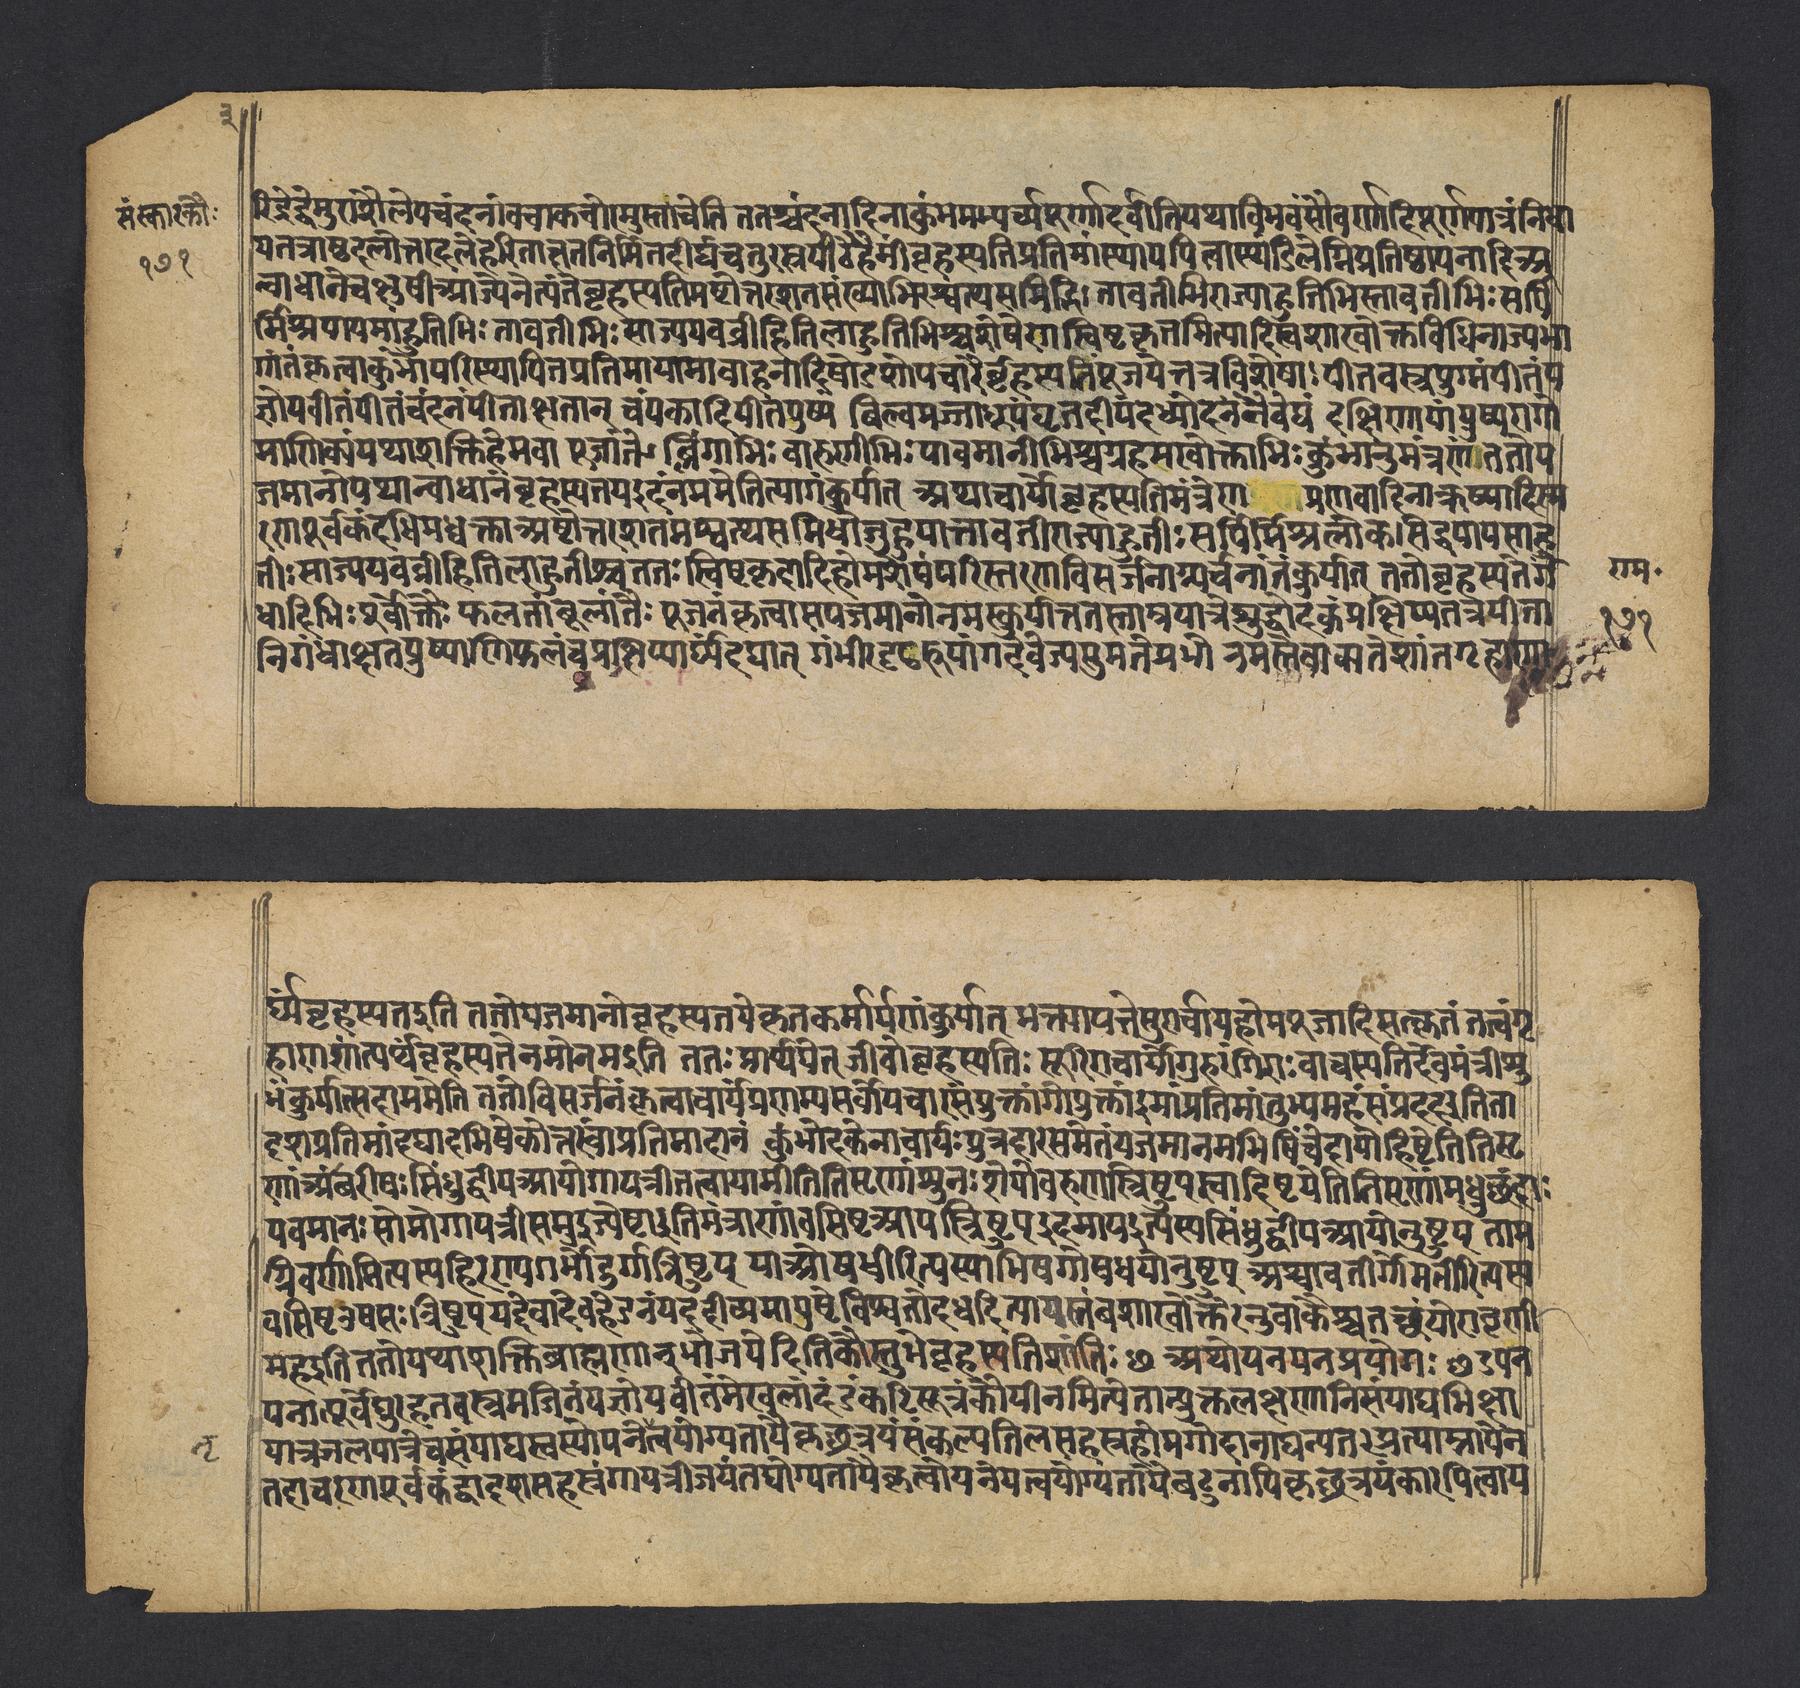 ३
संस्कारकौः
१७१
रिद्रेद्वेमुराशैलेयचंदनं।वचाकचोरामुस्ताचेति ततश्चंदनादिनाकुंभंसमभ्यर्च्यपूर्णादर्वीतियथाविभवंसौवर्णादिपूर्णपात्रंनिधा
यतत्राष्टदलोत्तरदलेहरितालतनिर्मितदीर्घचतुरस्रपीठेहैमींबृहस्पतिप्रतिमांस्थापयित्वास्थंडिलेग्निप्रतिष्ठापनादिअ
न्वाधानेचक्षुषीआज्येनेत्यंतेबृहस्पतिमष्टोत्तरशतसंख्याभिरश्वत्थसमिद्भिः तावतीभिराज्याहुतिभिस्तावतीभिः सर्पि
र्मिश्रपायसाहुतिभिः तावतीभिः साज्ययवव्रीहितिलाहुतिभिश्चशेषेणस्विष्टकृतमित्यादिस्वशाखोक्तविधिनाज्यभा
गांतंकृत्वाकुंभोपरिस्थापितप्रतिमायामावाहनादिषोडशोपचारैर्बृहस्पतिंपूजयेत्तत्रविशेषः पीतवस्त्रयुग्मंपीतंय
ज्ञोपवीतंपीतंचंदनंपीताक्षतान् चंपकादिपीतपुष्पं बिल्वमज्जाधूपंघृतदीपंदध्योदनंनैवेद्यं दक्षिणायांपुष्परागो
माणिक्यंयथाशक्तिहेमवा पूजांते लिंगाभिः वारुणीभिः पावमानीभिश्चग्रहमखोक्ताभिः कुंभानुमंत्रणं ततोय
जमानोयथान्वाधानंबृहस्पतयइदंनममेतित्यागंकुर्यात् अथाचार्योबृहस्पतिमंत्रेण प्रणवादिनाऋष्यादिस्म
रणपूर्वकंदधिमध्वक्ताअष्टोत्तरशतमश्वत्थसमिधोजुहुयात्तावतीराज्याहुतीः सर्पिर्मिश्र पायसाहु
तीः साज्ययवव्रीहितिलाहुतीश्चततः स्विष्टकृदादिहोमशेषंपरिस्तरणविसर्जनाग्न्यर्चनांतंकुर्यात् ततोबृहस्पतेर्गं
धादिभिः पूर्वोक्तैः फलतांबूलांतैः पूजनंकृत्वासयजमानोनमस्कुर्यात्ततस्ताम्रपात्रेशुद्धोदकंप्रक्षिप्यतत्रपीता
निगंधाक्षतपुष्पाणिफलंचप्रक्षिप्यार्घ्यंदद्यात् गंभीरदृढरूपांगदेवेज्यसुमतेप्रभो नमस्तेवाक्पतेशांतगृहाणा
राम॰
१७१
र्घ्यंबृहस्पतइति ततोयजमानोबृहस्पतयेकृतकर्मार्पणंकुर्यात् भक्त्यायत्तेसुराचार्यहोमपूजादिसत्कृतं तत्त्वंगृ
हाणशांत्यर्थंबृहस्पतेनमोनमइति ततः प्रार्थयेत् जीवोबृहस्पतिः सूरिराचार्योगुरुरंगिराः वाचस्पतिर्देवमंत्रीशु
भंकुर्यात्सदाममेति ततोविसर्जनंकृत्वाचार्यंप्रणम्यसर्वोपचारसंयुक्तांगोयुक्तांइमांप्रतिमांतुभ्यमहंसंप्रददइतिता
दृशप्रतिमांदद्यादभिषेकोत्तरंवाप्रतिमादानं कुंभोदकेनाचार्यः पुत्रदारसमेतंयजमानमभिषिंचेदापोहिष्ठेतितिसृ
णांअंबरीषः सिंधुद्वीपआपोगायत्रीतत्वायामीतितिसृणांशुनः शेपोवरुणस्त्रिष्टुप्स्वादिष्टयेतितिसृणांमधुछंदाः
पवमानः सोमोगायत्रीसमुद्रज्येष्ठाइतिमंत्राणांवसिष्ठआपस्त्रिष्टुप् इदमापइत्यस्यसिंधुद्वीपआपोनुष्टुप् ताम
ग्निवर्णामित्यस्यहिरण्यगर्भोदुर्गात्रिष्टुप् याओषधीरित्यस्याभिषगोषधयोनुष्टुप् अश्वावतीर्गोमतीरित्यस्य
वसिष्ठउषसः त्रिष्टुप्यद्देवादेवहेडनंयददीव्यमापुष्टेविश्वतोदधदित्यापस्तंबशाखोक्तैरनुवाकैश्चतच्छंयोरावृणी
महइतिततोयथाशक्तिब्राह्मणान्भोजयेदितिकौस्तुभेबृहस्पतिशांतिः ॥ अथोपनयनप्रयोगः ॥ उपन
यनात्पूर्वेद्युरहतवस्त्रमजिनंयज्ञोपवीतंमेखलांदंडंकटिसूत्रंकौपीनमित्येतान्युक्तलक्षणानिसंपाद्यभिक्षा
पात्रंजलपात्रंचसंपाद्यस्वस्योपनेतृत्वयोग्यतायैकृच्छ्रत्रयंसंकल्पतिलसहस्रहोमगोदानाद्यन्यतरप्रत्याम्नायेन
तदाचरणपूर्वकंद्वादशसहस्रंगायत्रीजपंतद्योग्यतायैकृत्वोपनेयत्वयोग्यतायैबटुनापिकृच्छ्रत्रयंकारयित्वाय
तृ